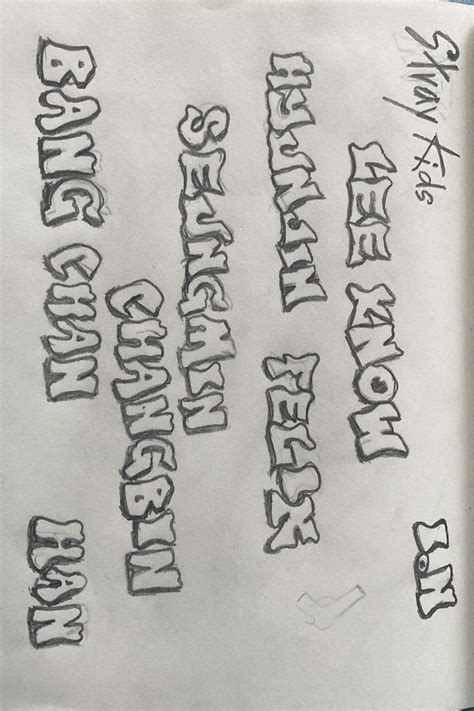 Stray Kids
I.N
LEE KNOW
HYUNJIN FELIX
SEUNGMIN
CHANGBIN
BANG CHAN HAN